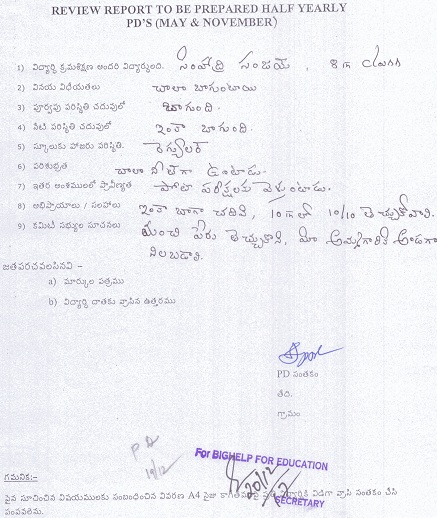 REVIEW REPORT TO BE PREPARED HALF YEARLY
PD'S (MAY & NOVEMBER)
1) విద్యార్థి క్రమశిక్షణ అందరి విద్యార్థులది. సింహాద్రి సంజయ్, 8th class
2) వినయ విధేయతలు చాలా బాగుంటాయి
3) పూర్వపు పరిస్థితి చదువులో బాగుంది.
4) నేటి పరిస్థితి చదువులో ఇంకా బాగుంది.
5) స్కూలుకు హాజరు పరిస్థితి. రెగ్యులర్
6) పరిశుభ్రత చాలా నీట్‌గా ఉంటాడు.
7) ఇతర అంశములలో ప్రావీణ్యత పోటీ పరీక్షలకు వెళుంటాడు.
8) అభిప్రాయాలు / సలహాలు ఇంకా బాగా చదివి, 10th లో 10/10 తెచ్చుకోవాలి.
9) కమిటీ సభ్యుల సూచనలు మంచి పేరు తెచ్చుకొని, మా అమ్మగారికి అండగా
నిలబడాలి
జతపరచవలసినవి -
a) మార్కుల పత్రము
b) విద్యార్థి దాతకు వ్రాసిన ఉత్తరము
PD సంతకం
తేది.
గ్రామం
PD
19/12
For BIGHELP FOR EDUCATION
20/12
SECRETARY
గమనిక:-
పైన సూచించిన విషయములకు సంబంధించిన వివరణ A4 సైజు కాగితముపై విడిగా వ్రాసి సంతకం చేసి
పంపవలెను.